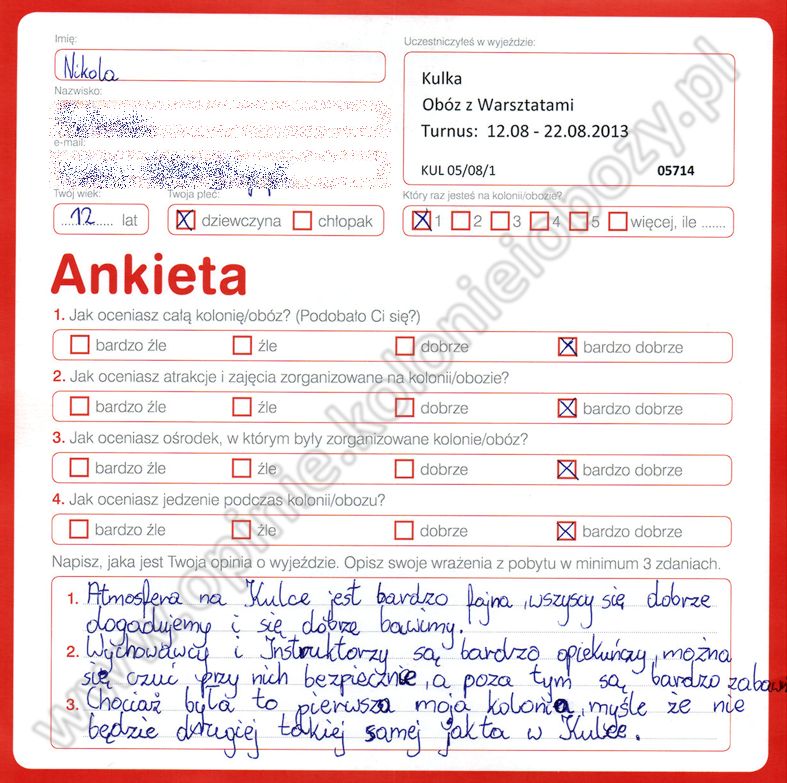 Imię:
Uczestniczyłeś w wyjeździe:
Nikola
Kulka
Obóz z Warsztatami
Turnus: 12.08 - 22.08.2013
KUL 05/08/1 05714
Nazwisko:
e-mail:
Twój wiek:
Twoja płeć:
Który raz jesteś na kolonii/obozie?
12 lat
dziewczyna chłopak
1 2 3 4 5 więcej, ile .......
Ankieta
1. Jak oceniasz całą kolonię/obóz? (Podobało Ci się?)
bardzo źle źle dobrze bardzo dobrze
2. Jak oceniasz atrakcje i zajęcia zorganizowane na kolonii/obozie?
bardzo źle źle dobrze bardzo dobrze
3. Jak oceniasz ośrodek, w którym były zorganizowane kolonie/obóz?
bardzo źle źle dobrze bardzo dobrze
4. Jak oceniasz jedzenie podczas kolonii/obozu?
bardzo źle źle dobrze bardzo dobrze
Napisz, jaka jest Twoja opinia o wyjeździe. Opisz swoje wrażenia z pobytu w minimum 3 zdaniach.
1. Atmosfera na Kulce jest bardzo fajna, wszyscy się dobrze
dogadujemy i się dobrze bawimy.
2. Wychowawcy i Instruktorzy są bardzo opiekuńczy, można
się czuć przy nich bezpiecznie, a poza tym są bardzo zabawni
3. Chociaż była to pierwsza moja kolonia, myśle że nie
będzie drugiej takiej samej jak ta w Kulce.
www.opinie.kolonieiobozy.pl